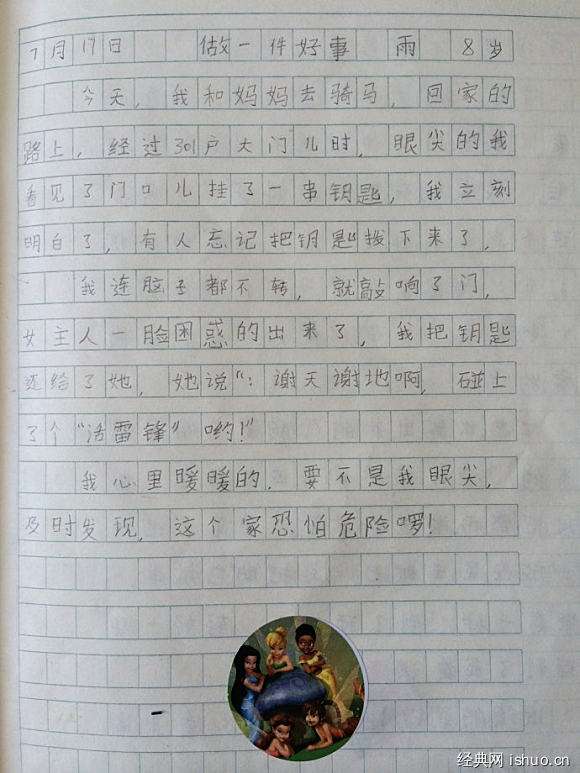 7月17日 做一件好事 雨 8岁
今天，我和妈妈去骑马，回家的
路上，经过301户大门儿时，眼尖的我
看见了门口儿挂了一串钥匙，我立刻
明白了，有人忘记把钥匙拔下来了，
我连脑子都不转，就敲响了门，
女主人一脸困惑的出来了，我把钥匙
还给了她，她说“：谢天谢地啊，碰上
了个“活雷锋”哟！”
我心里暖暖的．要不是我眼尖，
及时发现，这个家恐怕危险啰！
经典网 ishuo.cn